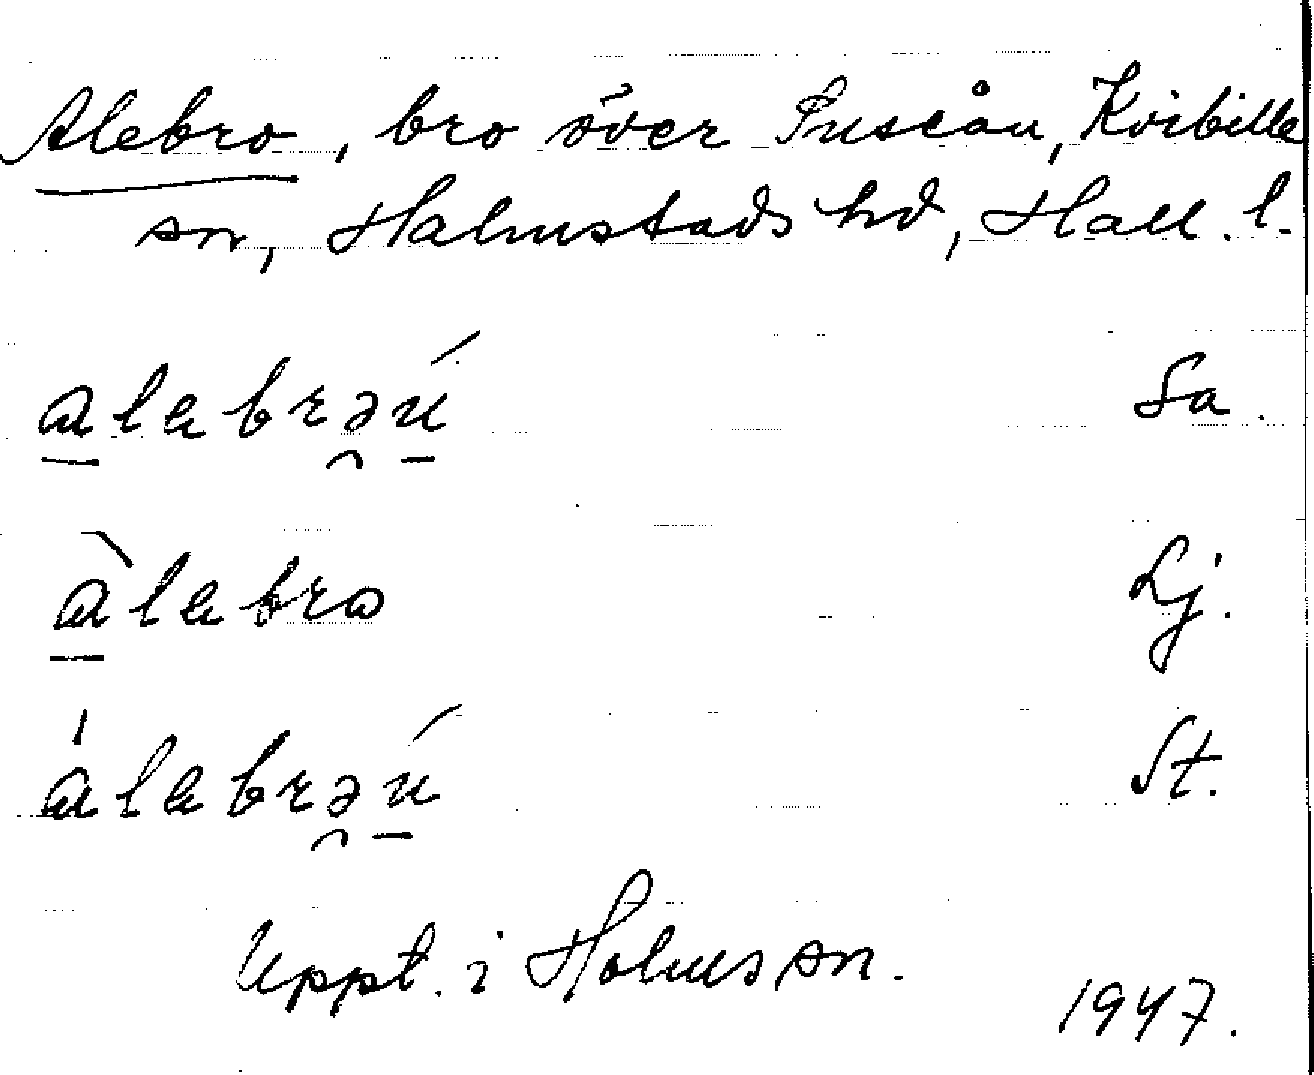 Alebro, bro över Suseån, Kvibille
sn, Halmstads hd, Hall. l.
alabrəú Sa.
àlabro Lj.
álabrəú St.
Uppt. i Holms sn.
1947.